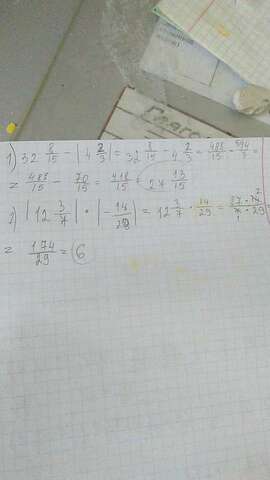 1) 32 8/15 - |4 2/3| = 32 8/15 - 4 2/3 = 488/15 - =
= 488/15 - 70/15 = 418/15 = 27 13/15
2) |12 3/7| · |-14/29| = 12 3/7 · 14/29 = 87 · 14 2 / 7 1 · 29 =
= 174/29 = 6